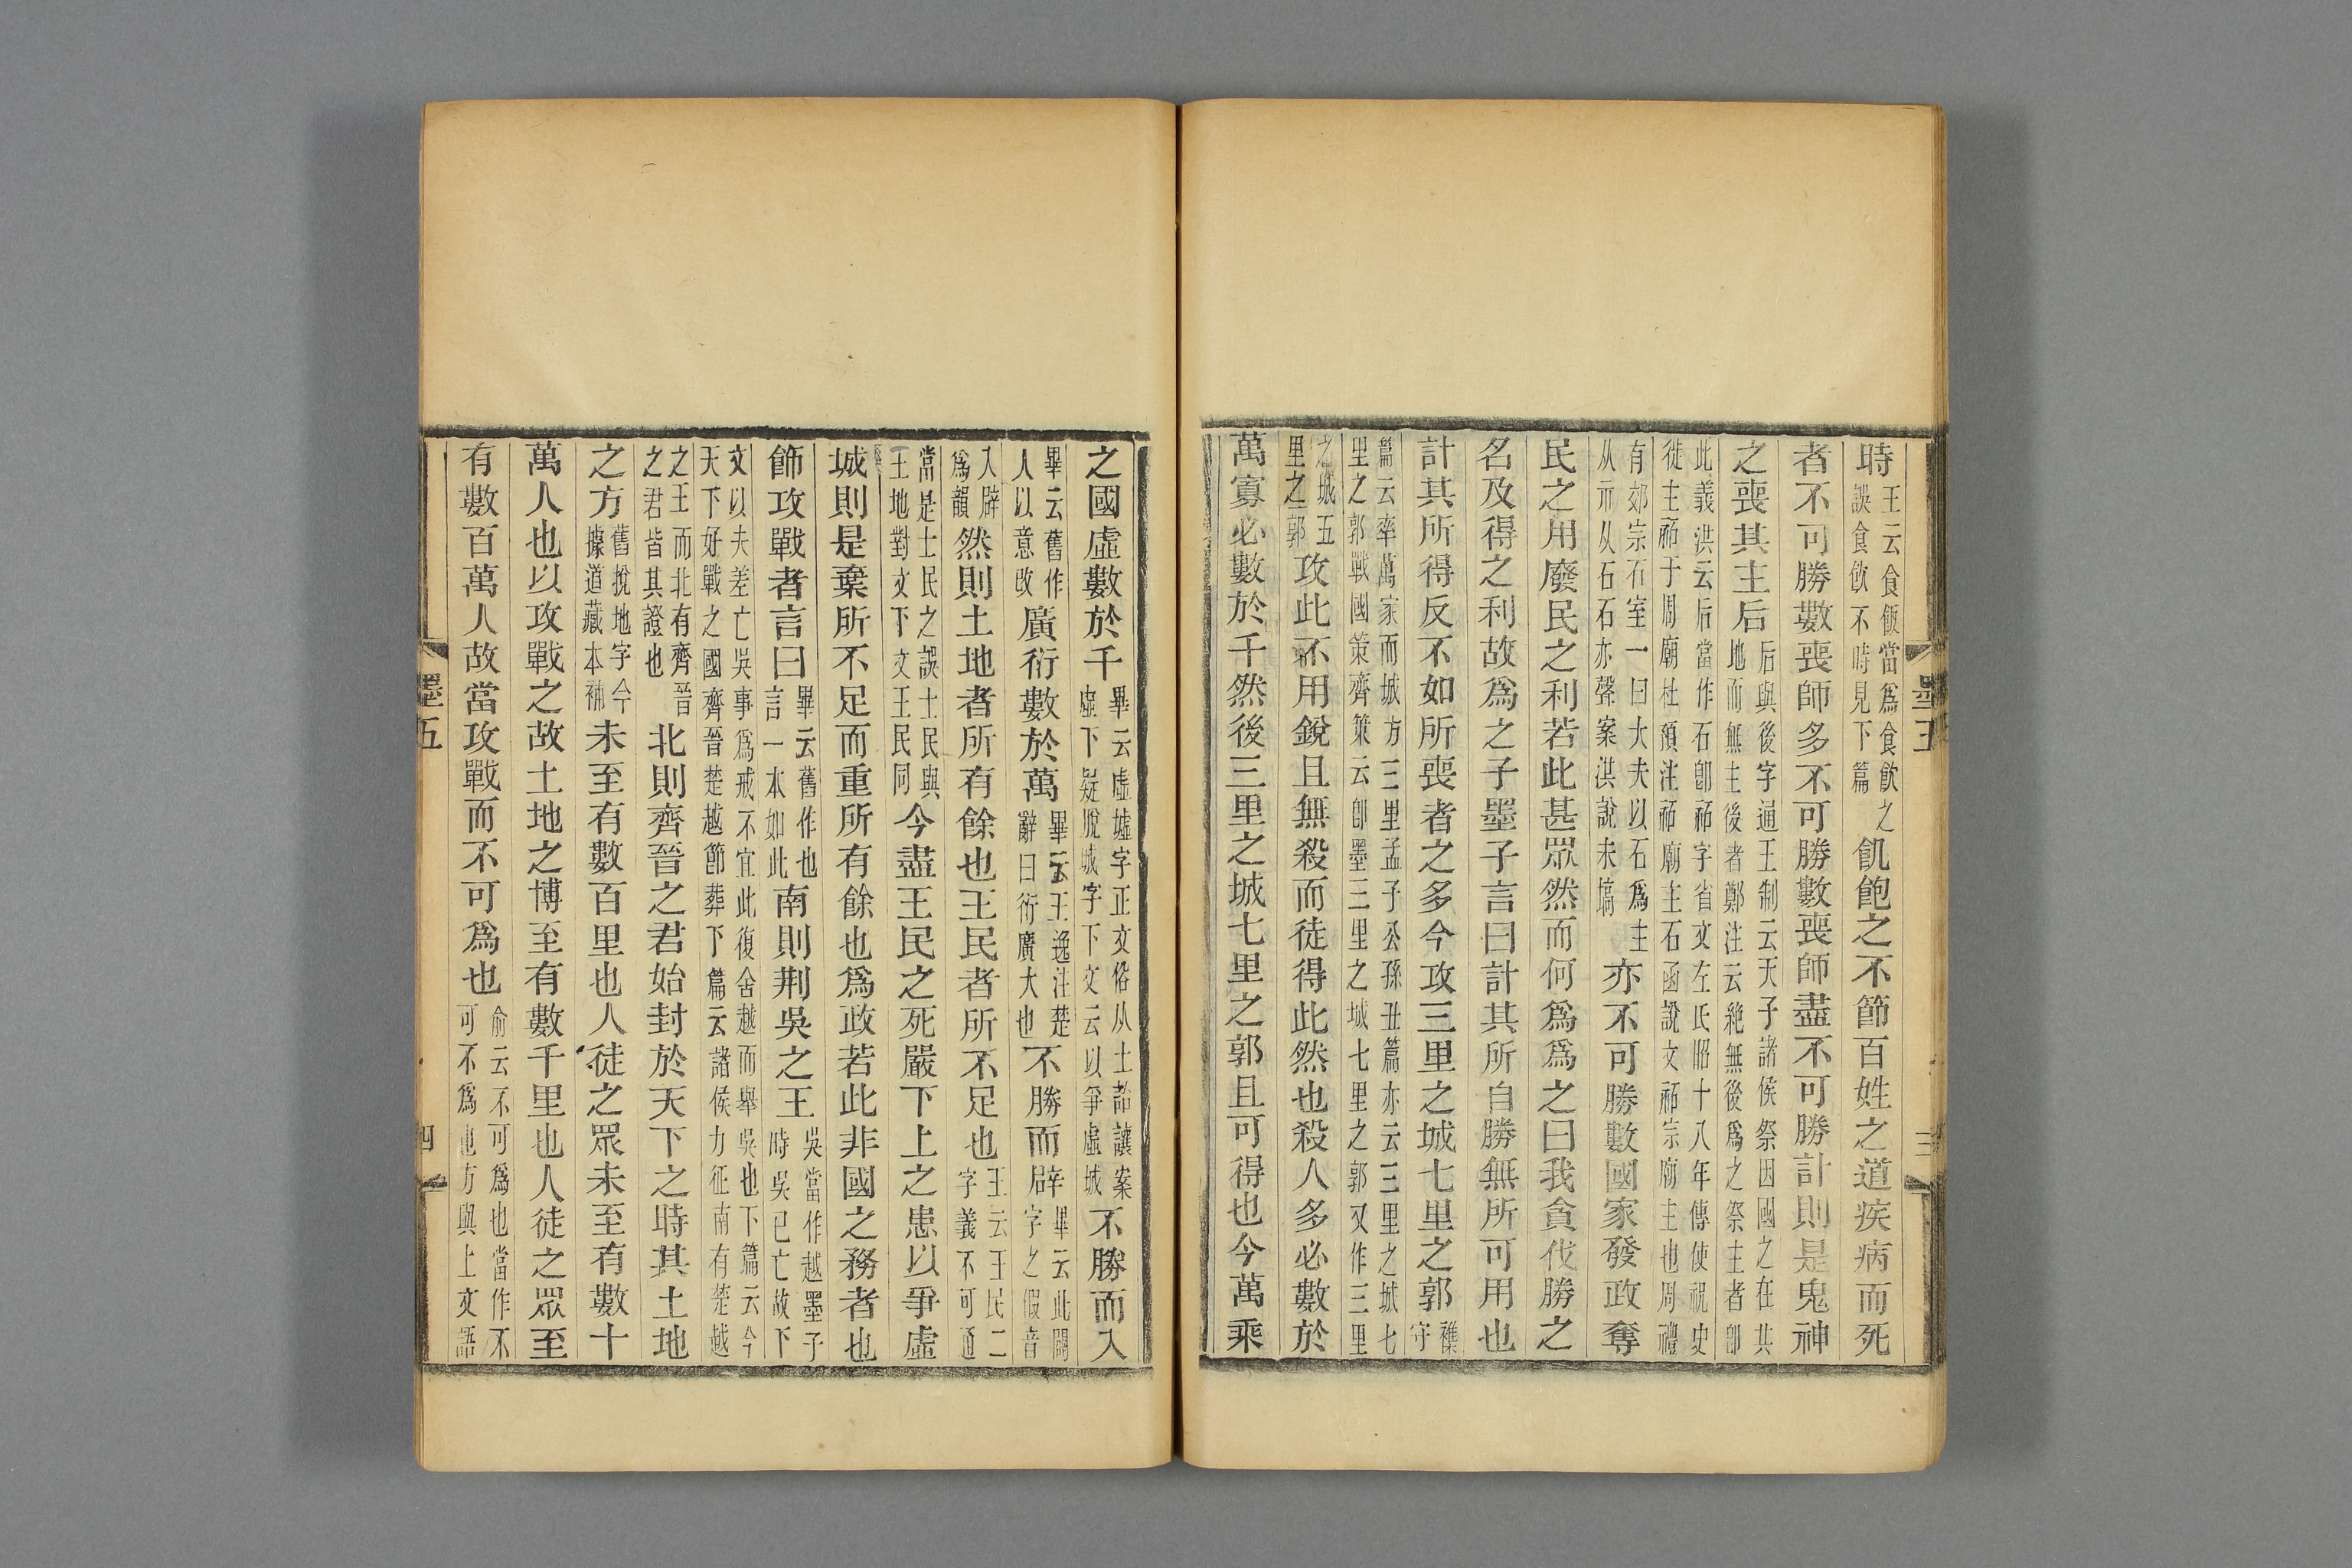 時王云食飯當爲食飮之誤食飮不時見下篇飢飽之不節百姓之道疾病而死
者不可勝數喪師多不可勝數喪師盡不可勝計則是鬼神
之喪其主后后與後字通王制云天子諸侯祭因國之在其地而無主後者鄭注云絶無後爲之祭主者卽
此義洪云后當作石卽祏字省文左氏昭十八年傳使祝史徙主祏于周廟杜預注祏廟主石函說文祏宗廟主也周禮
有郊宗石室一曰大夫以石爲主从示从石石亦聲案洪說未塙亦不可勝數國家發政奪
民之用廢民之利若此甚眾然而何爲爲之曰我貪伐勝之
名及得之利故爲之子墨子言曰計其所自勝無所可用也
計其所得反不如所喪者之多今攻三里之城七里之郭襍守
篇云率萬家而城方三里孟子公孫丑篇亦云三里之城七里之郭戰國策齊策云卽墨三里之城七里之郭又作三里
之城五里之郭攻此不用銳且無殺而徒得此然也殺人多必數於
萬寡必數於千然後三里之城七里之郭且可得也今萬乘
墨五
三
之國虛數於千畢云虛墟字正文俗从土詒讓案虛下疑脫城字下文云以爭虛城不勝而入
畢云舊作人以意改廣衍數於萬畢云王逸注楚辭曰衍廣大也不勝而辟畢云此闢字之假音
入辟爲韻然則土地者所有餘也王民者所不足也王云王民二字義不可通
當是土民之誤土民與王地對文下文王民同今盡王民之死嚴下上之患以爭虛
城則是棄所不足而重所有餘也爲政若此非國之務者也
飾攻戰者言曰畢云舊作也言一本如此南則荆吳之王吳當作越墨子時吳已亡故下
文以夫差亡吳事爲戒不宜此復舍越而舉吳也下篇云今天下好戰之國齊晉楚越節葬下篇云諸侯力征南有楚越
之王而北有齊晉之君皆其證也北則齊晉之君始封於天下之時其土地
之方舊挩地字今據道藏本補未至有數百里也人徒之眾未至有數十
萬人也以攻戰之故土地之博至有數千里也人徒之眾至
有數百萬人故當攻戰而不可爲也俞云不可爲也當作不可不爲也方與上文語
墨五
四